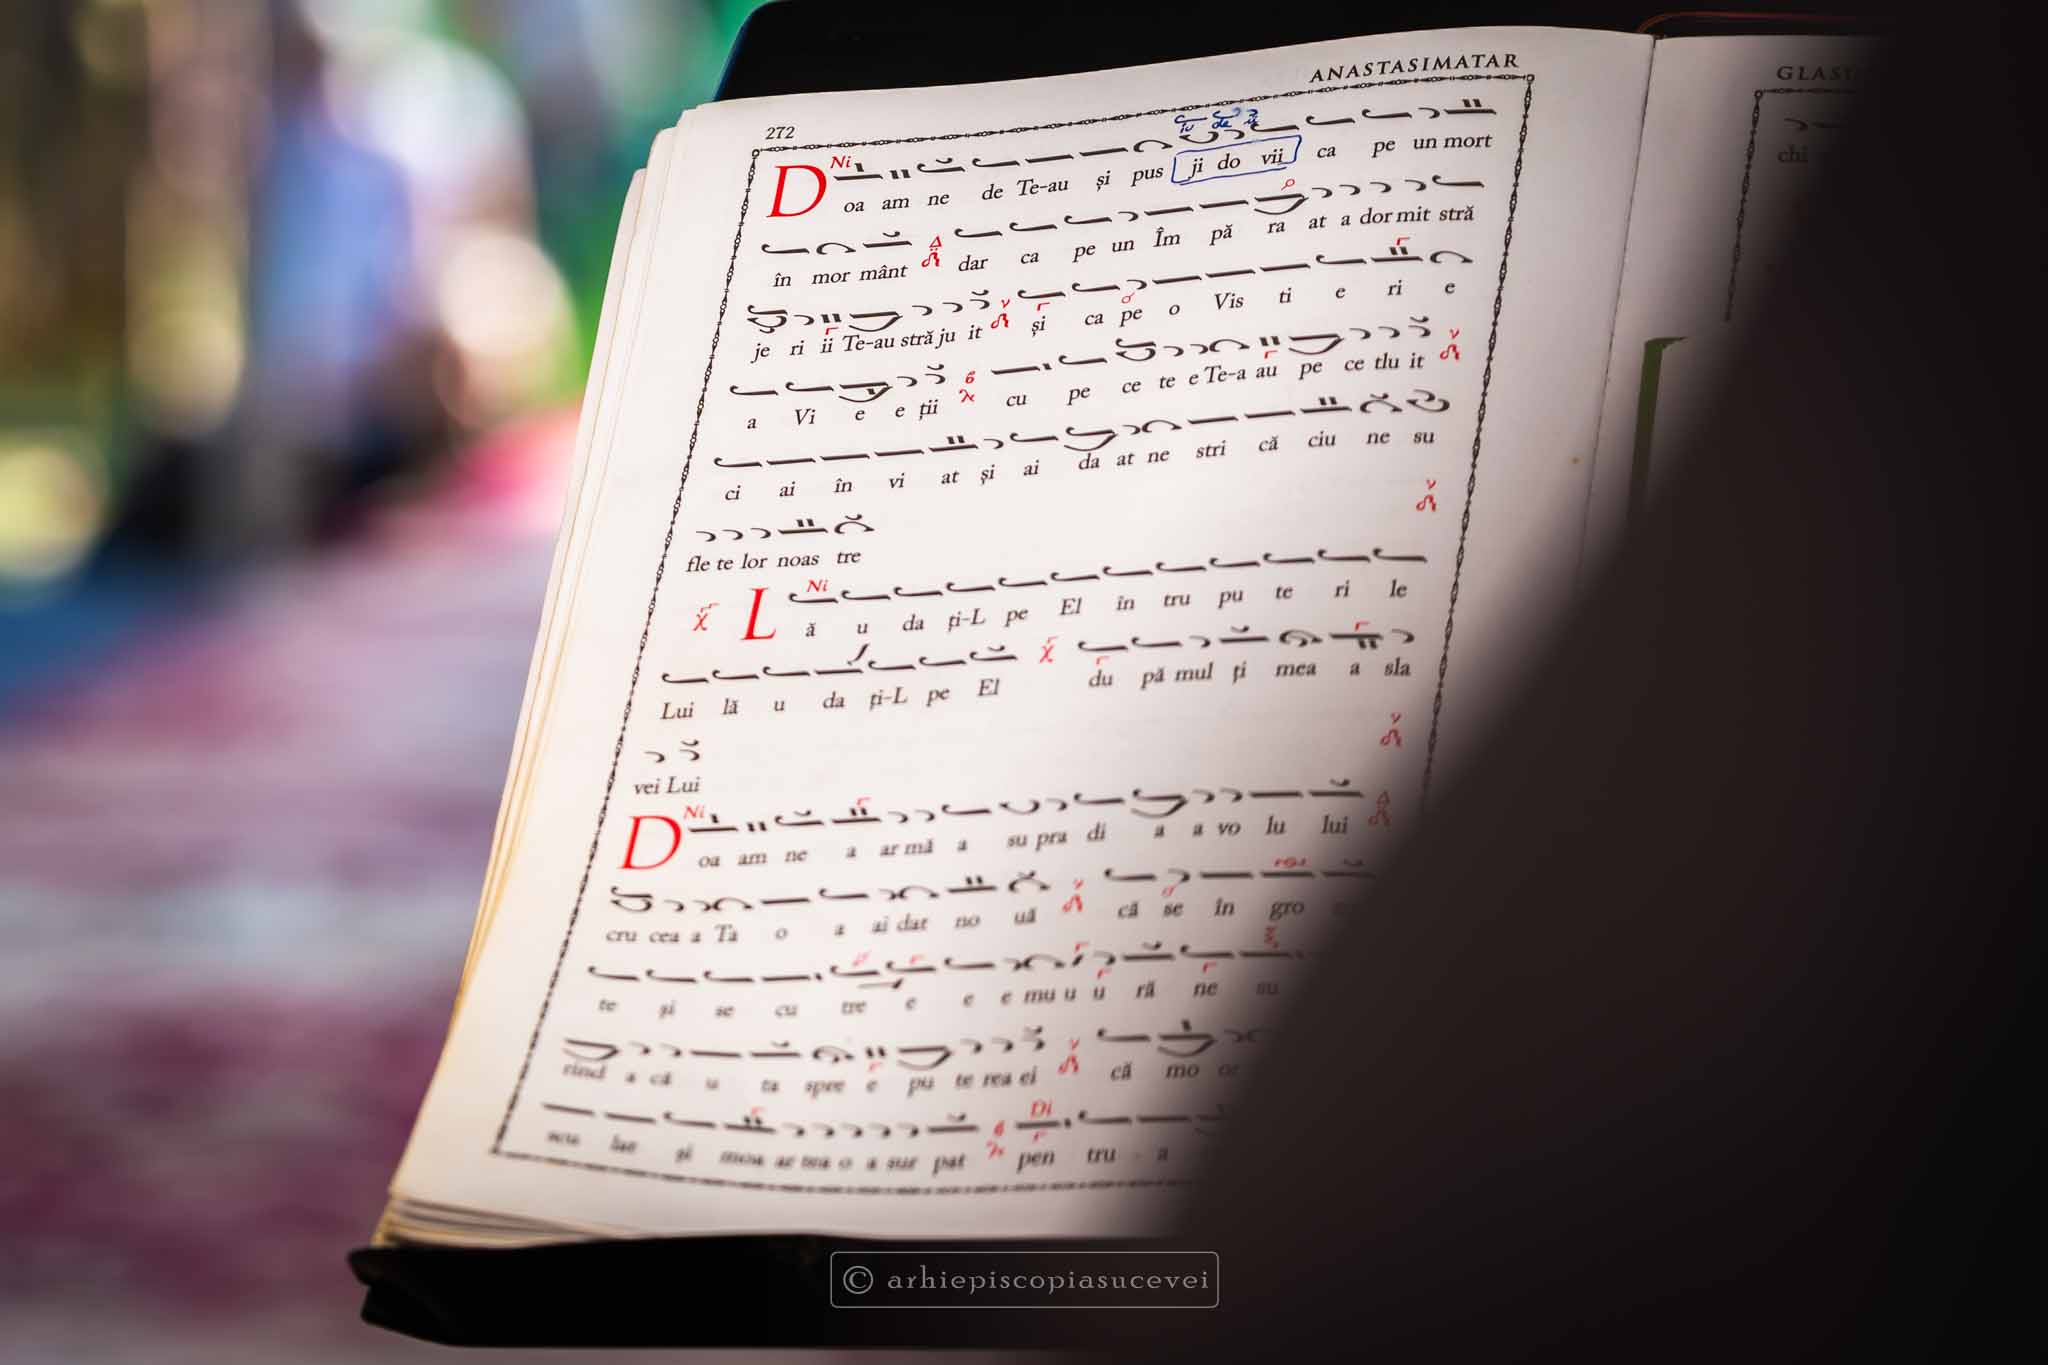 ANASTASIMATAR
GLAS
272
Iu de ii
Ni
Doa am ne de Te-au și pus ji do vii ca pe un mort
în mor mânt dar ca pe un Îm pă ra at a dor mit stră
je ri ii Te-au stră ju it și ca pe o Vis ti e ri e
a Vi e e ții cu pe ce te e Te-a au pe ce tlu it
ci ai în vi at și ai da at ne stri că ciu ne su
fle te lor noas tre
Ni
Lă u da ți-L pe El în tru pu te ri le
Lui lă u da ți-L pe El du pă mul ți mea a sla
vei Lui
Ni
Doa am ne a ar mă a su pra di a a vo lu lui
cru cea a Ta o a ai dat no uă că se în gro
te și se cu tre e e e mu u u ră ne su
rind a că u ta spre e pu te rea ei că mo
Di
scu lat și moa ar tea o a sur pat pen tru - a
chi
© arhiepiscopiasucevei